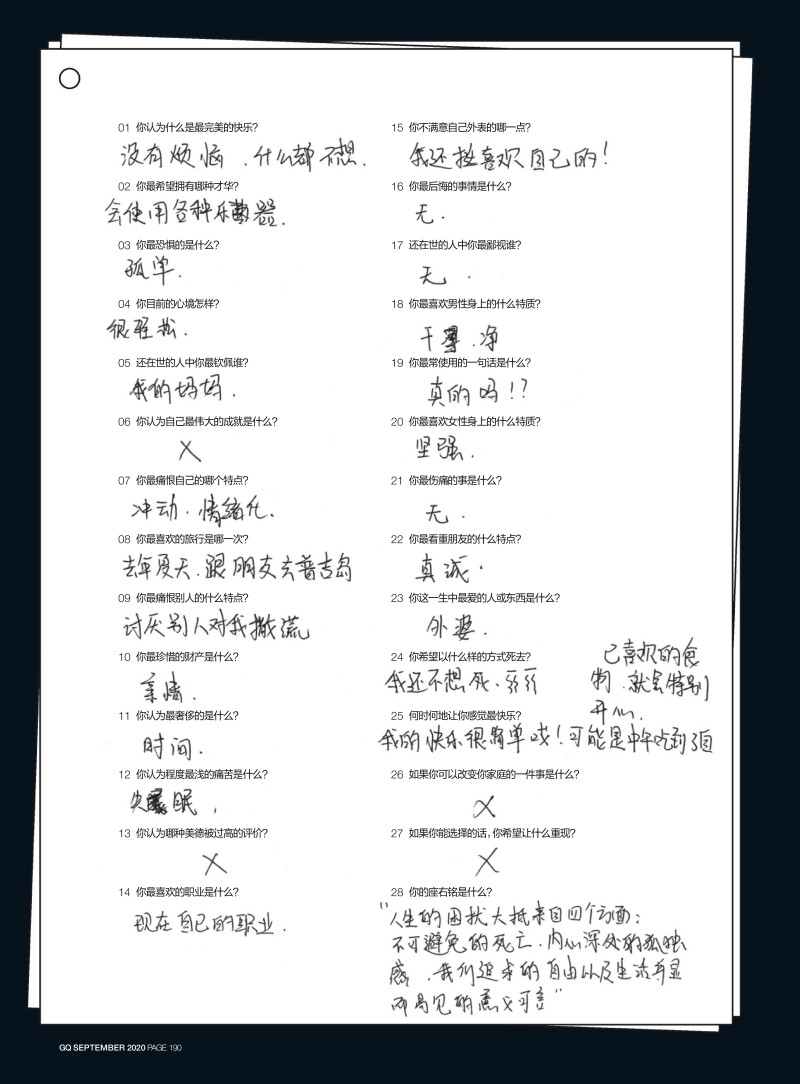 01 你认为什么是最完美的快乐?
没有烦恼.什么都不想.
02 你最希望拥有哪种才华?
会使用各种乐器.
03 你最恐惧的是什么?
孤单.
04 你目前的心境怎样?
很轻松.
05 还在世的人中你最钦佩谁?
我的妈妈.
06 你认为自己最伟大的成就是什么?
X
07 你最痛恨自己的哪个特点?
冲动.情绪化.
08 你最喜欢的旅行是哪一次?
去年夏天.跟朋友去普吉岛
09 你最痛恨别人的什么特点?
讨厌别人对我撒谎
10 你最珍惜的财产是什么?
亲情.
11 你认为最奢侈的是什么?
时间.
12 你认为程度最浅的痛苦是什么?
失眠.
13 你认为哪种美德被过高的评价?
X
14 你最喜欢的职业是什么?
现在自己的职业.
15 你不满意自己外表的哪一点?
我还挺喜欢自己的!
16 你最后悔的事情是什么?
无.
17 还在世的人中你最鄙视谁?
无.
18 你最喜欢男性身上的什么特质?
干净
19 你最常使用的一句话是什么?
真的吗!?
20 你最喜欢女性身上的什么特质?
坚强.
21 你最伤痛的事是什么?
无.
22 你最看重朋友的什么特点?
真诚.
23 你这一生中最爱的人或东西是什么?
外婆.
24 你希望以什么样的方式死去?
我还不想死.
25 何时何地让你感觉最快乐?
我的快乐很简单哎!可能是中午吃到自
己喜欢的食
物.就会特别
开心.
26 如果你可以改变你家庭的一件事是什么?
X
27 如果你能选择的话,你希望让什么重现?
X
28 你的座右铭是什么?
"人生的困扰大抵来自四个方面:
不可避免的死亡.内心深处的孤独
感.我们追求的自由以及生活并显
而易见的意义可言"
GQ SEPTEMBER 2020 PAGE 190